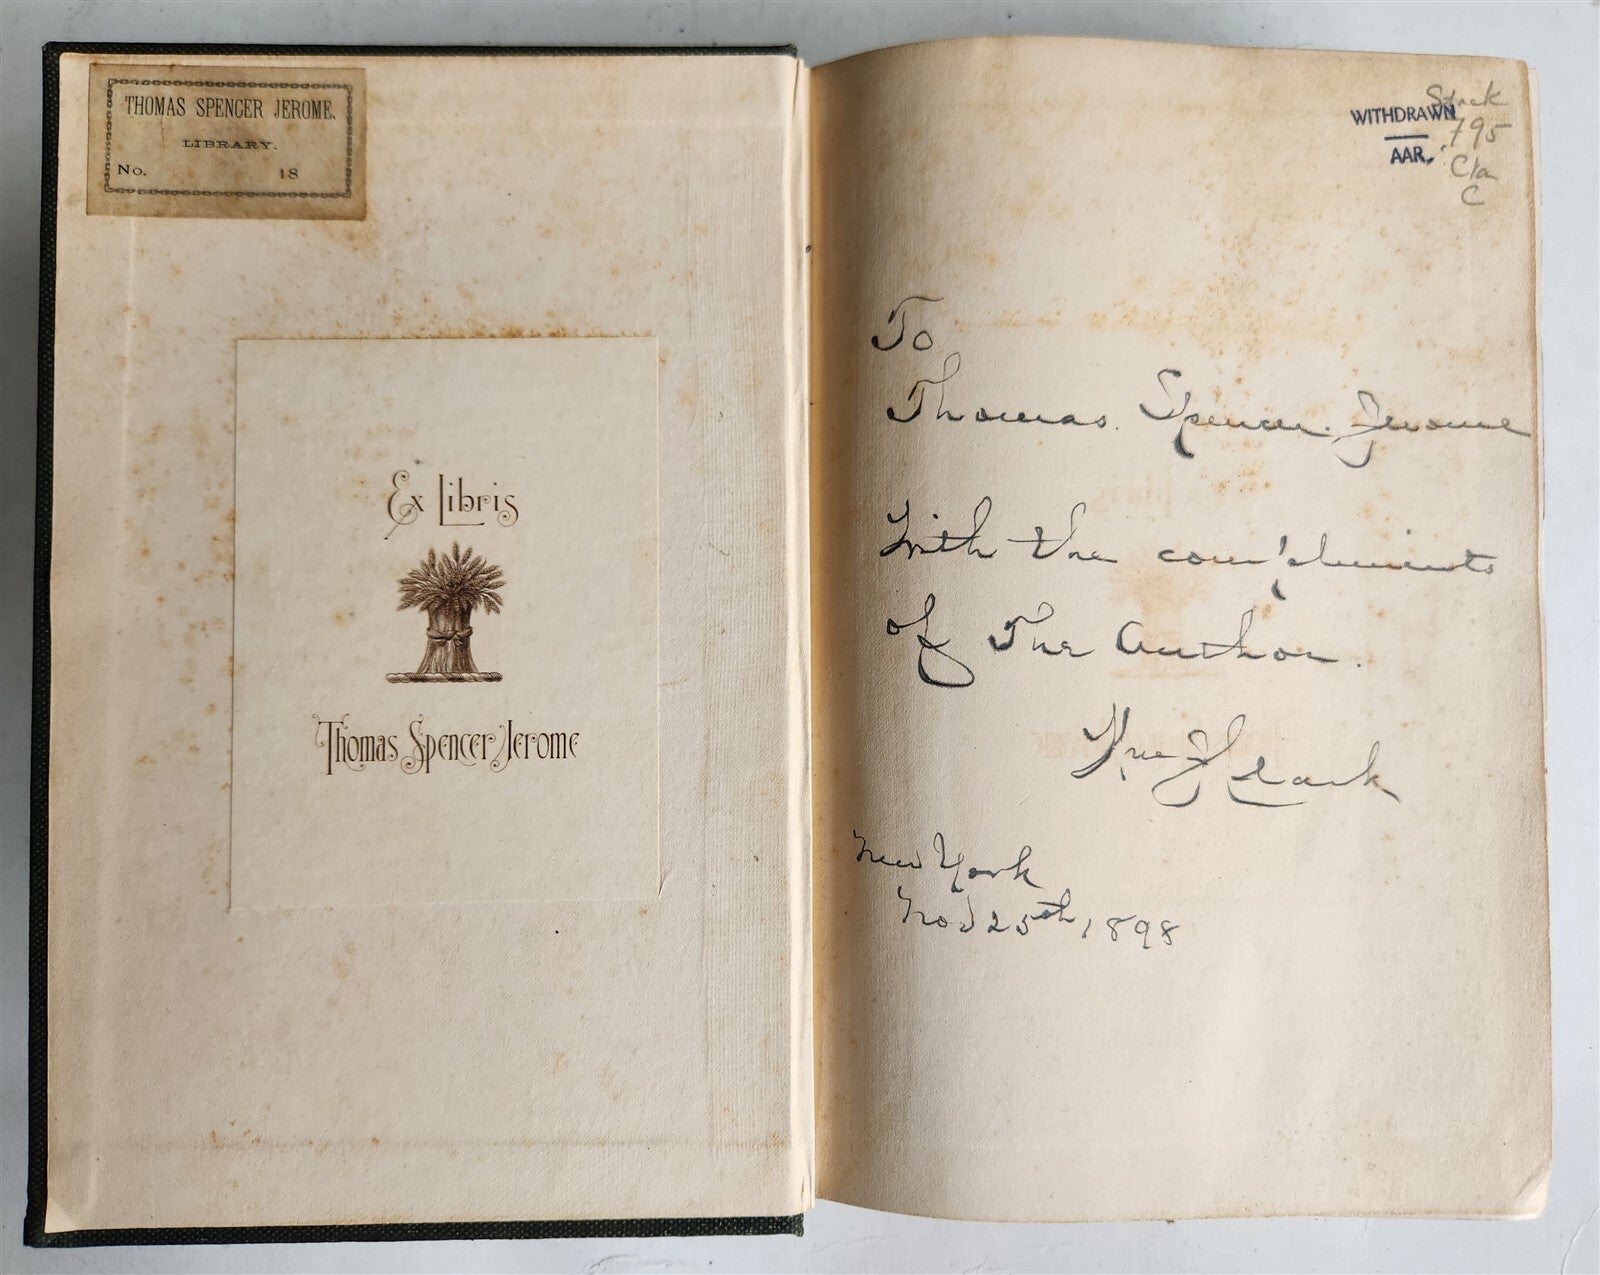 THOMAS SPENCER JEROME.
LIBRARY.
No. 18
Ex Libris
Thomas Spencer Jerome
WITHDRAWN
AAR.
Stack
795
Cla
C
To
Thomas Spencer Jerome
With the compliments
of The Author.
Clark
New York
Nov 25th, 1898